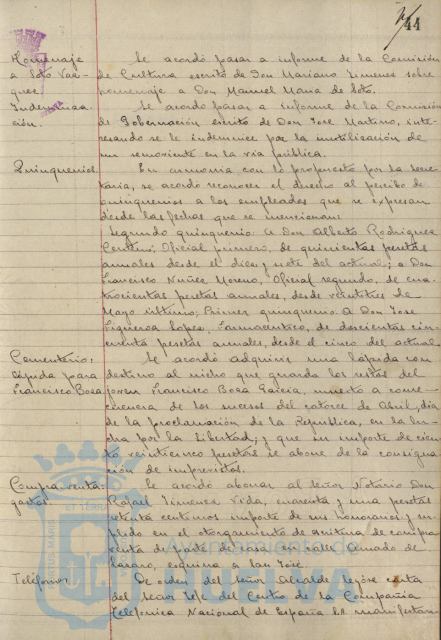 44
Homenaje
a Soto Vaz-
quez
Indemniza-
ción.
Se acordó pasar a informe de la Comisión
de Cultura escrito de Don Mariano Jimenes sobre
homenaje a Don Manuel Maria de Soto.
Se acordó pasar a informe de la Comisión
de Gobernación escrito de Don José Martino, inte-
resando se le indemnice por la inutilización de
un semoviente en la via pública.
Quinquenios.
En armonia con lo propuesto por la Secre-
taria, se acordó reconocer el derecho al percibo de
quinquenios a los empleados que se expresan
desde las fechas que se mencionan:
Segundo quinquenio: A Don Alberto Rodriguez
Centeno, Oficial primero, de quinientas pesetas
anuales desde el diez y siete del actual; a Don
Francisco Nuñez Moreno, Oficial segundo, de cua-
trocientas pesetas anuales, desde veintitres de
Mayo último; Primer quinquenio A Don José
Figueroa Lopez, Farmaceutico, de doscientas cin-
cuenta pesetas anuales, desde el cinco del actual
Cementerio:
Lápida para
Francisco Bosa
Se acordó adquirir una lápida con
destino al nicho que guarda los restos del
joven Francisco Bosa Garcia, muerto a conse-
cuencia de los sucesos del catorce de Abril, dia
de la proclamación de la Republica, en la lu-
cha por la Libertad; y que su importe de cien-
to veinticinco pesetas se abone de la consigna-
ción de imprevistos.
Compra venta:
gastos.
Se acordó abonar al Señor Notario Don
Rafael Jimenez Vida, cuarenta y una pesetas
setenta centimos importe de sus honorarios y su-
plido en el otorgamiento de escritura de compra
venta de parte de casa en calle Amado de
Lazaro, esquina a San José.
Teléfonos
De orden del Señor Alcalde leyóse carta
del Señor Jefe del Centro de la Compañia
Telefonica Nacional de España en manifestan
Ayuntamiento de
HUELVA